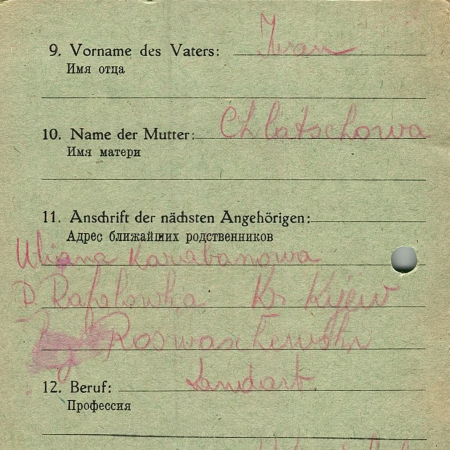 9. Vorname des Vaters: Iwan
Имя отца
10. Name der Mutter: Chlatschowa
Имя матери
11. Anschrift der nächsten Angehörigen:
Адрес ближайших родственников
Uliana Karabanowa
D. Rafalowka Kr. Kijew
12. Beruf: Landarb.
Профессия